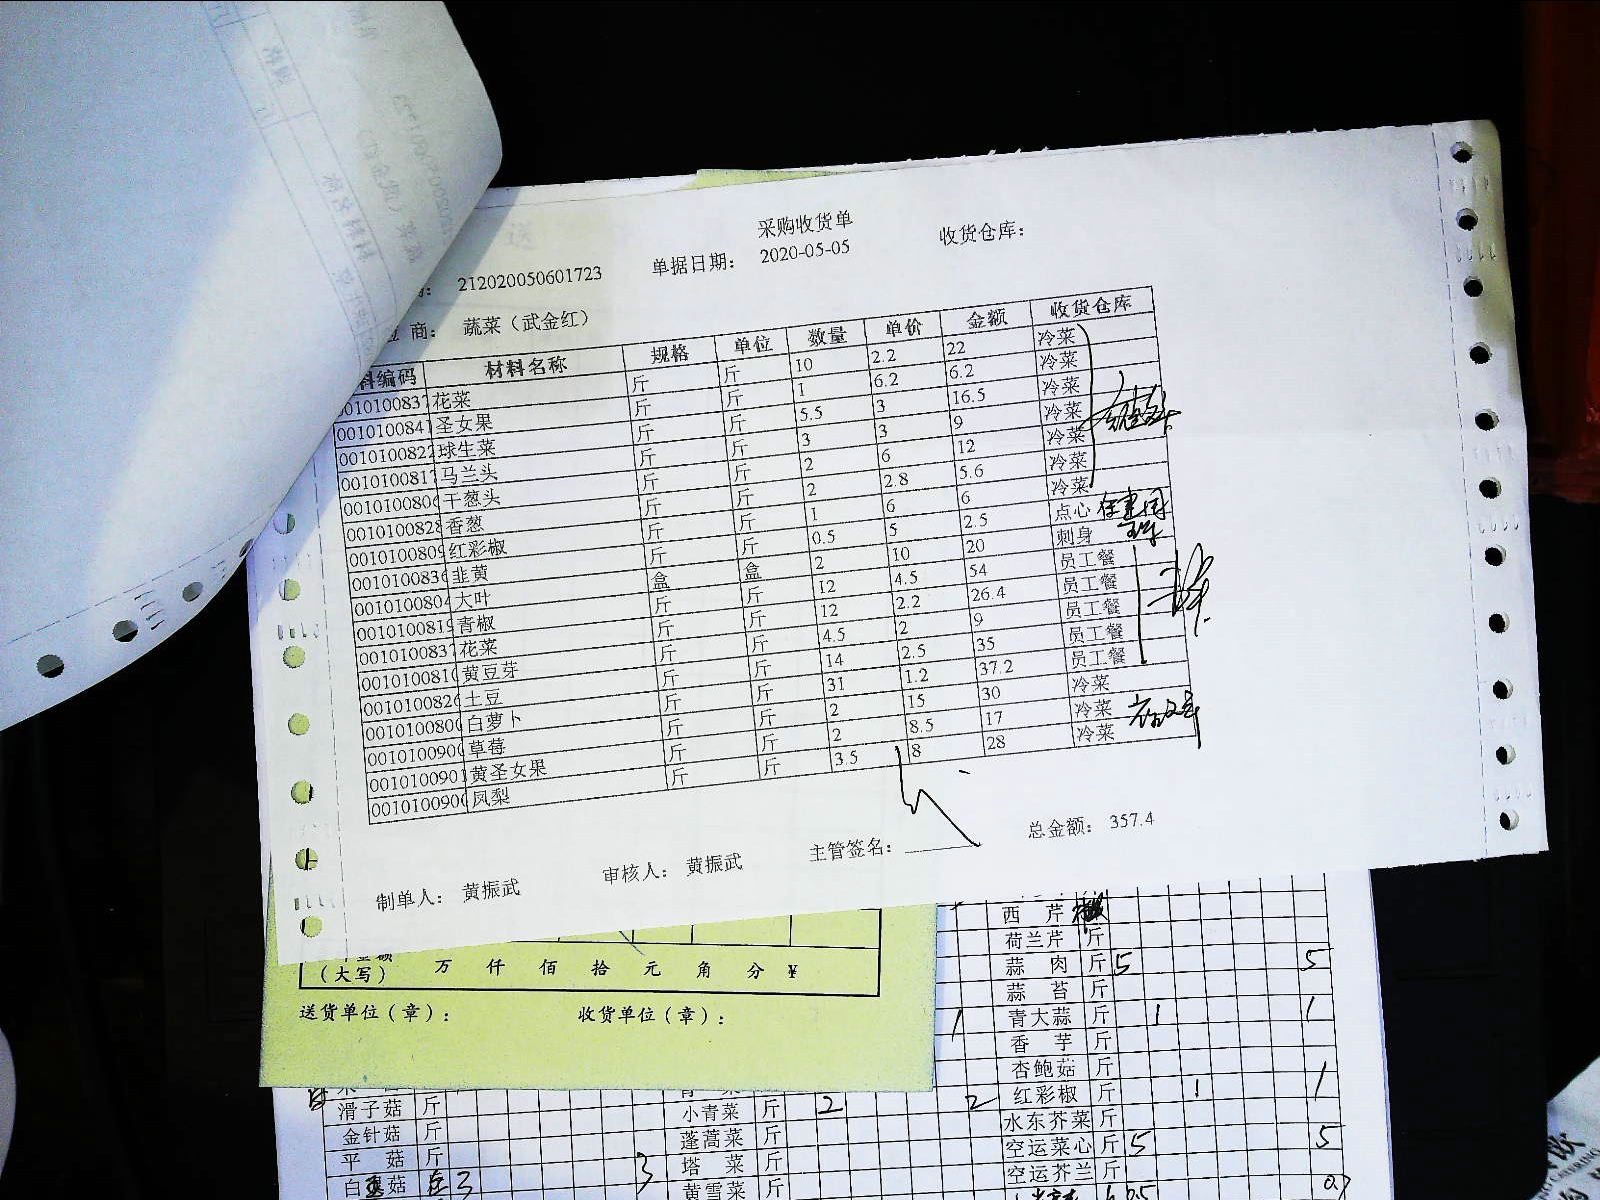 采购收货单
212020050601723 单据日期： 2020-05-05 收货仓库：
商： 蔬菜（武金红）
编码 材料名称 规格 单位 数量 单价 金额 收货仓库
010100837 花菜 斤 斤 10 2.2 22 冷菜
001010084 圣女果 斤 斤 1 6.2 6.2 冷菜
0010100822 球生菜 斤 斤 5.5 3 16.5 冷菜
0010100817 马兰头 斤 斤 3 3 9 冷菜
001010080 干葱头 斤 斤 2 6 12 冷菜
0010100828 香葱 斤 斤 2 2.8 5.6 冷菜
0010100809 红彩椒 斤 斤 1 6 6 冷菜
001010083 韭黄 斤 斤 0.5 5 2.5 点心
001010080 大叶 盒 盒 2 10 20 刺身
0010100819 青椒 斤 斤 12 4.5 54 员工餐
0010100837 花菜 斤 斤 12 2.2 26.4 员工餐
001010081 黄豆芽 斤 斤 4.5 2 9 员工餐
001010082 土豆 斤 斤 14 2.5 35 员工餐
001010080 白萝卜 斤 斤 31 1.2 37.2 员工餐
001010090 草莓 斤 斤 2 15 30 冷菜
001010090 黄圣女果 斤 斤 2 8.5 17 冷菜
001010090 凤梨 斤 斤 3.5 8 28 冷菜
制单人： 黄振武 审核人： 黄振武 主管签名： 总金额： 357.4
（大写） 万 仟 佰 拾 元 角 分 ¥
送货单位（章）： 收货单位（章）：
西 芹
荷兰芹 斤
蒜 肉 斤 5 5
蒜 苔 斤
青大蒜 斤 1 1
香 芋 斤
杏鲍菇 斤
滑子菇 斤 小青菜 斤 2 2 红彩椒 斤 1 1
金针菇 斤 蓬蒿菜 斤 水东芥菜 斤
平 菇 斤 塔 菜 斤 空运菜心 斤 5 5
白 菇 3 3 黄雪菜 斤 空运芥兰 斤